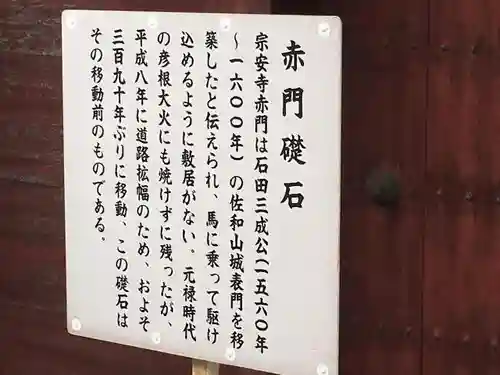 赤門礎石
宗安寺赤門は石田三成公(一五六〇年
～一六〇〇年)の佐和山城表門を移
築したと伝えられ、馬に乗って駆け
込めるように敷居がない。元禄時代
の彦根大火にも焼けずに残ったが、
平成八年に道路拡幅のため、およそ
三百九十年ぶりに移動、この礎石は
その移動前のものである。